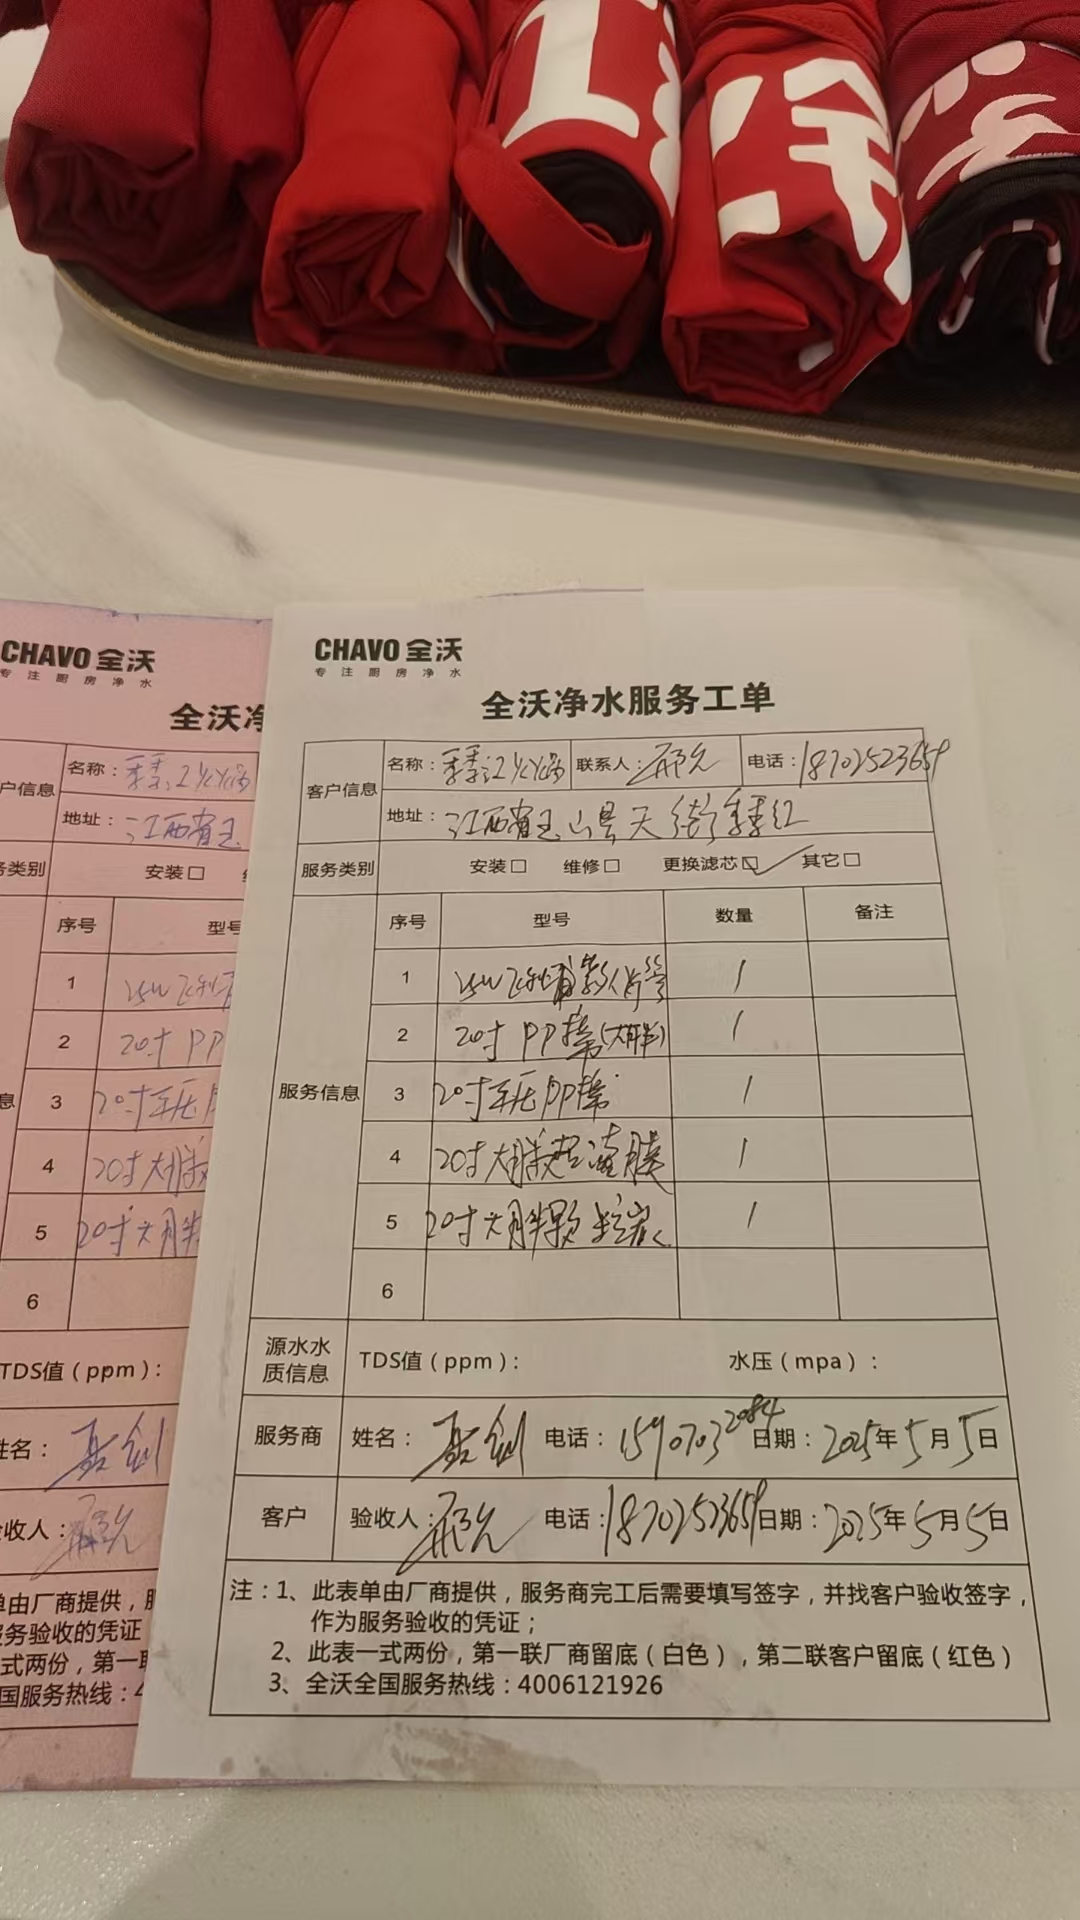 CHAVO 全沃
专注厨房净水
全沃净
名称：季季红火锅
户信息
地址：江西省玉
务类别 安装□
序号 型号
1
2 20寸 PP
息 3 20寸
4 20寸大胖
5 20寸大胖
6
TDS值（ppm）：
姓名：
收人：
单由厂商提供，服
务验收的凭证
式两份，第一联
国服务热线：4
CHAVO 全沃
专注厨房净水
全沃净水服务工单
客户信息 名称：季季红火锅 联系人： 电话：18702523659
地址：江西省玉山县天街季季红
服务类别 安装□ 维修□ 更换滤芯☑ 其它□
服务信息 序号 型号 数量 备注
1 25W飞利浦杀菌灯管 1
2 20寸 PP棉（大胖） 1
3 20寸 PP棉 1
4 20寸大胖超滤膜 1
5 20寸大胖颗粒炭 1
6
源水水质信息 TDS值（ppm）： 水压（mpa）：
服务商 姓名： 电话：15907032084 日期：2025年5月5日
客户 验收人： 电话：18702523659 日期：2025年5月5日
注：1、此表单由厂商提供，服务商完工后需要填写签字，并找客户验收签字，
作为服务验收的凭证；
2、此表一式两份，第一联厂商留底（白色），第二联客户留底（红色）
3、全沃全国服务热线：4006121926